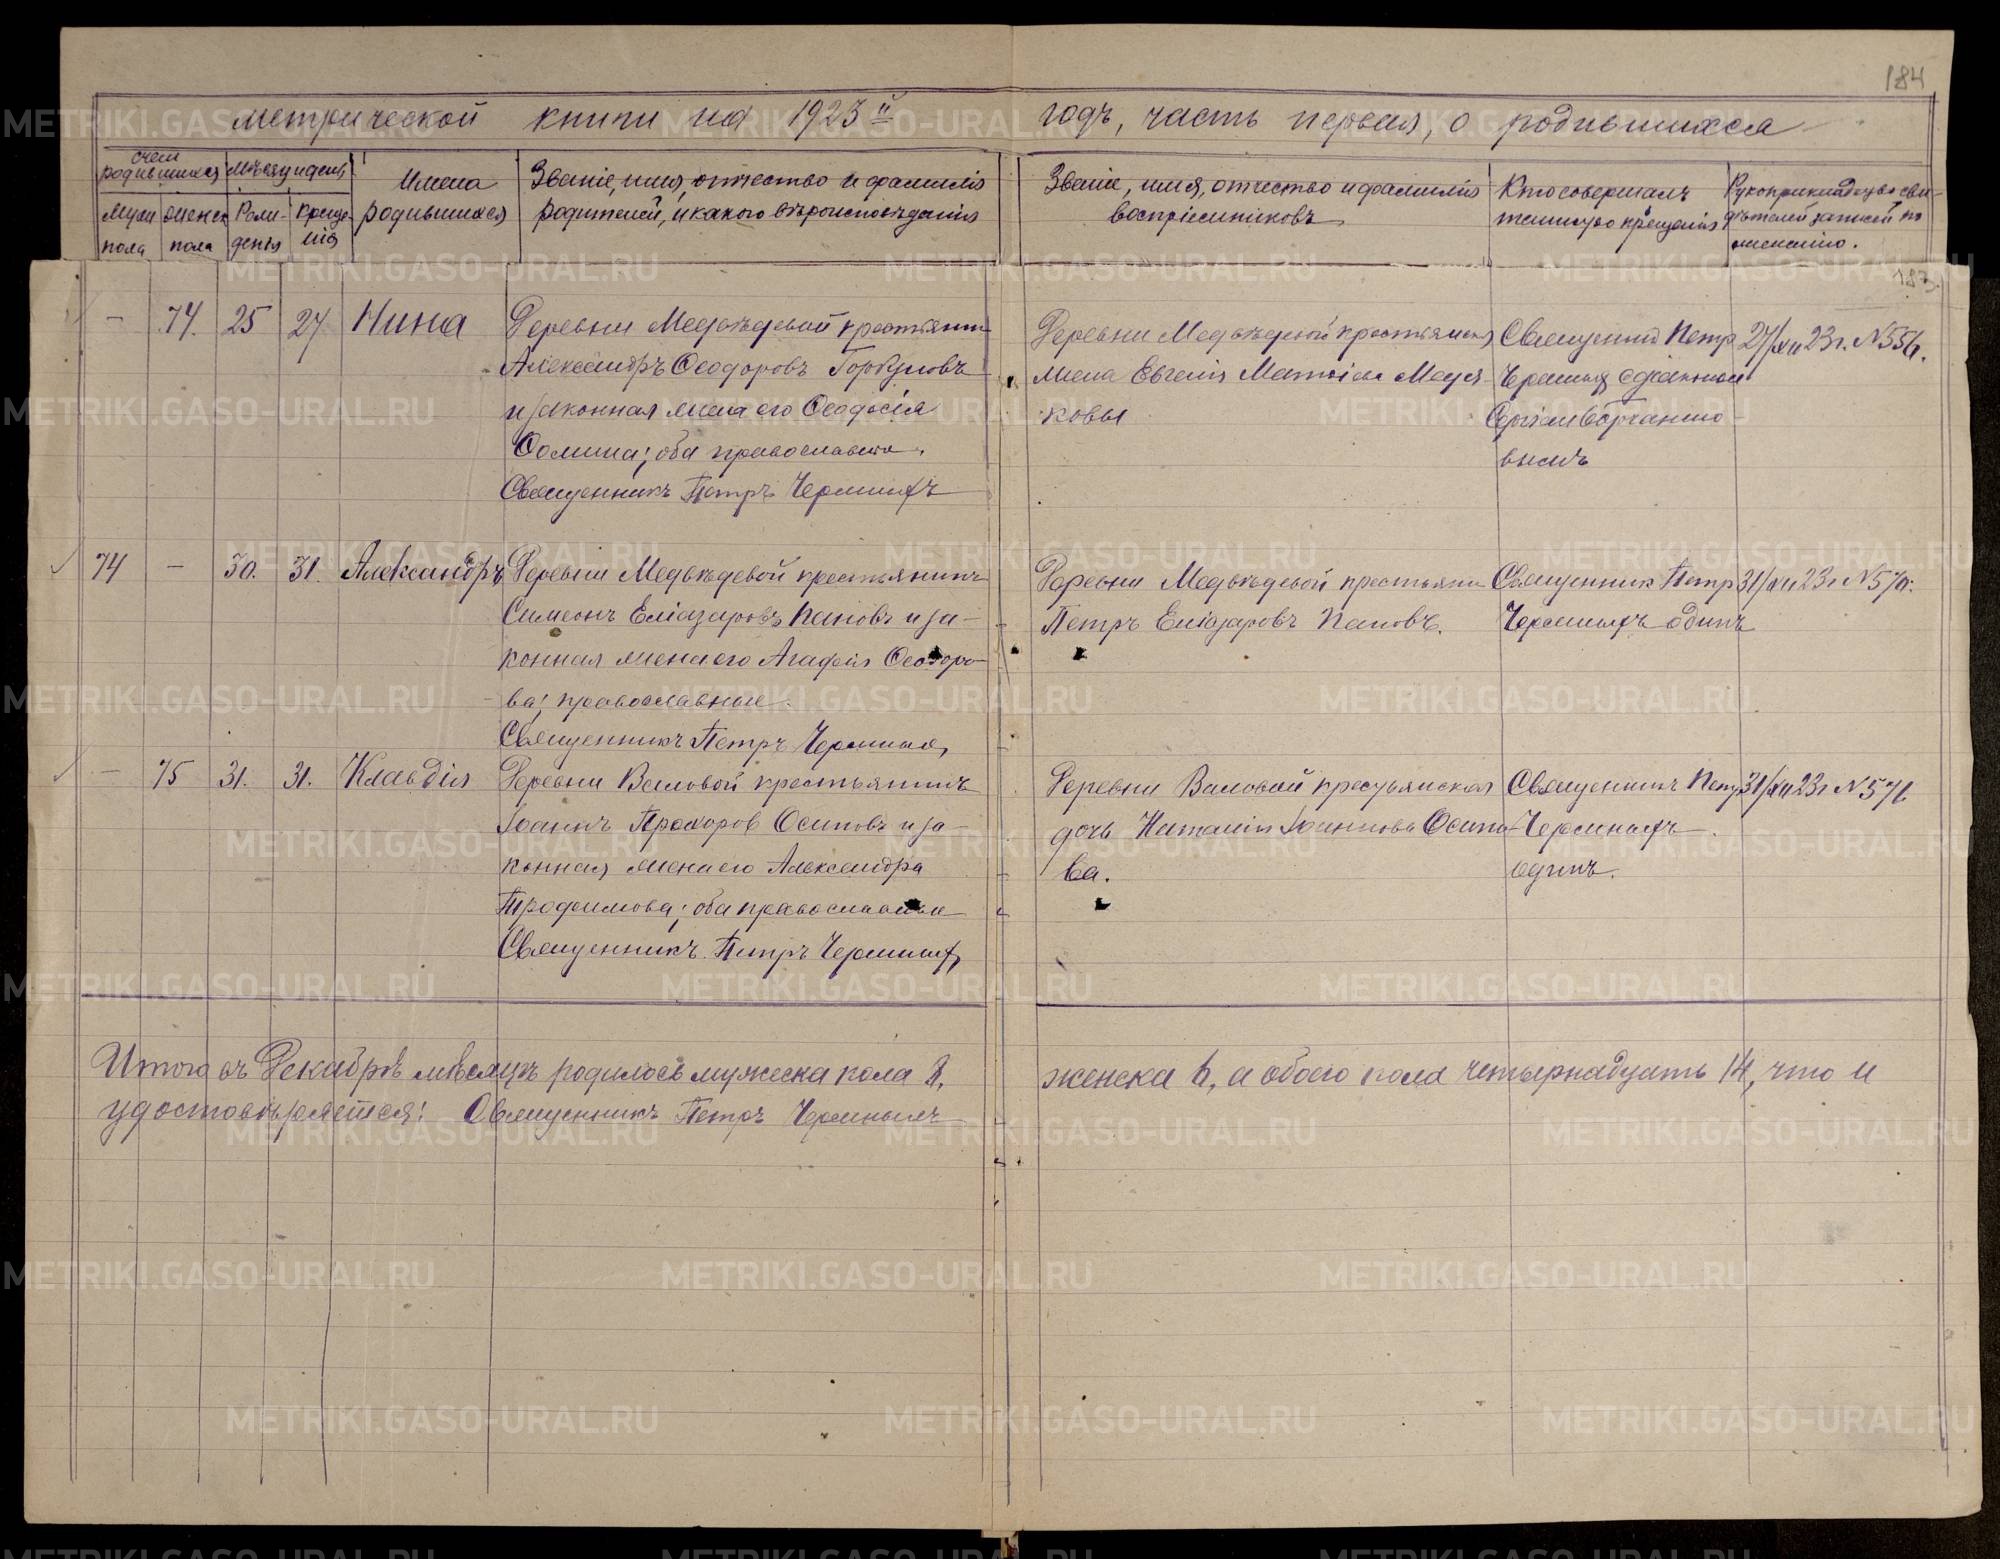 184
метрической книги на 1923й годъ, часть первая, о родившихся
счет родившихся
Мѣсяц и день
Имена родившихся
Званіе, имя, отчество и фамилія
родителей, и какого вѣроисповѣданія
Званіе, имя, отчество и фамилія
воспріемниковъ
Кто совершалъ
таинство крещенія
Рукоприкладство сви-
дѣтелей записей по
желанію.
Муж. пола
женск. пола
Рож-
денія
Креще-
нія
187.
- 74. 25 27 Нина
Деревни Медвѣдевой крестьянин
Александръ Ѳеодоровъ Горбуновъ
и законная жена его Ѳеодосія
Ѳомина; оба православные.
Священникъ Петръ Черныхъ
Деревни Медвѣдевой крестьянская
жена Евгенія
ковы
Священник Петр
Черныхъ с діаконом
Сергіем
вымъ
27/XII 23г. N 556.
74 - 30. 31. Александръ
Деревни Медвѣдевой крестьянинъ
Симеонъ Еліазаровъ Паповъ и за-
конная жена его Агафья Ѳеодоро-
ва; православные.
Священникъ Петръ Черныхъ
Деревни Медвѣдевой крестьянин
Петръ Еліазаровъ Паповъ.
Священник Петр
Черныхъ одинъ
31/XII 23г N 570.
- 75 31. 31. Клавдія
Деревни Валовой крестьянинъ
Іоаннъ Прохоров Осиповъ и за-
конная жена его Александра
Трофимова; оба православные
Священникъ Петръ Черныхъ
Деревни Валовой крестьянская
дочь Наталія Іоаннова Осипо-
ва.
Священникъ Петр
Черныхъ
одинъ.
31/XII 23г N 571.
Итого въ Декабрѣ мѣсяцѣ родилось мужеска пола 8, женска 6, а обоего пола четырнадцать 14, что и
удостовѣряется: Священникъ Петръ Черныхъ
METRIKI.GASO-URAL.RU